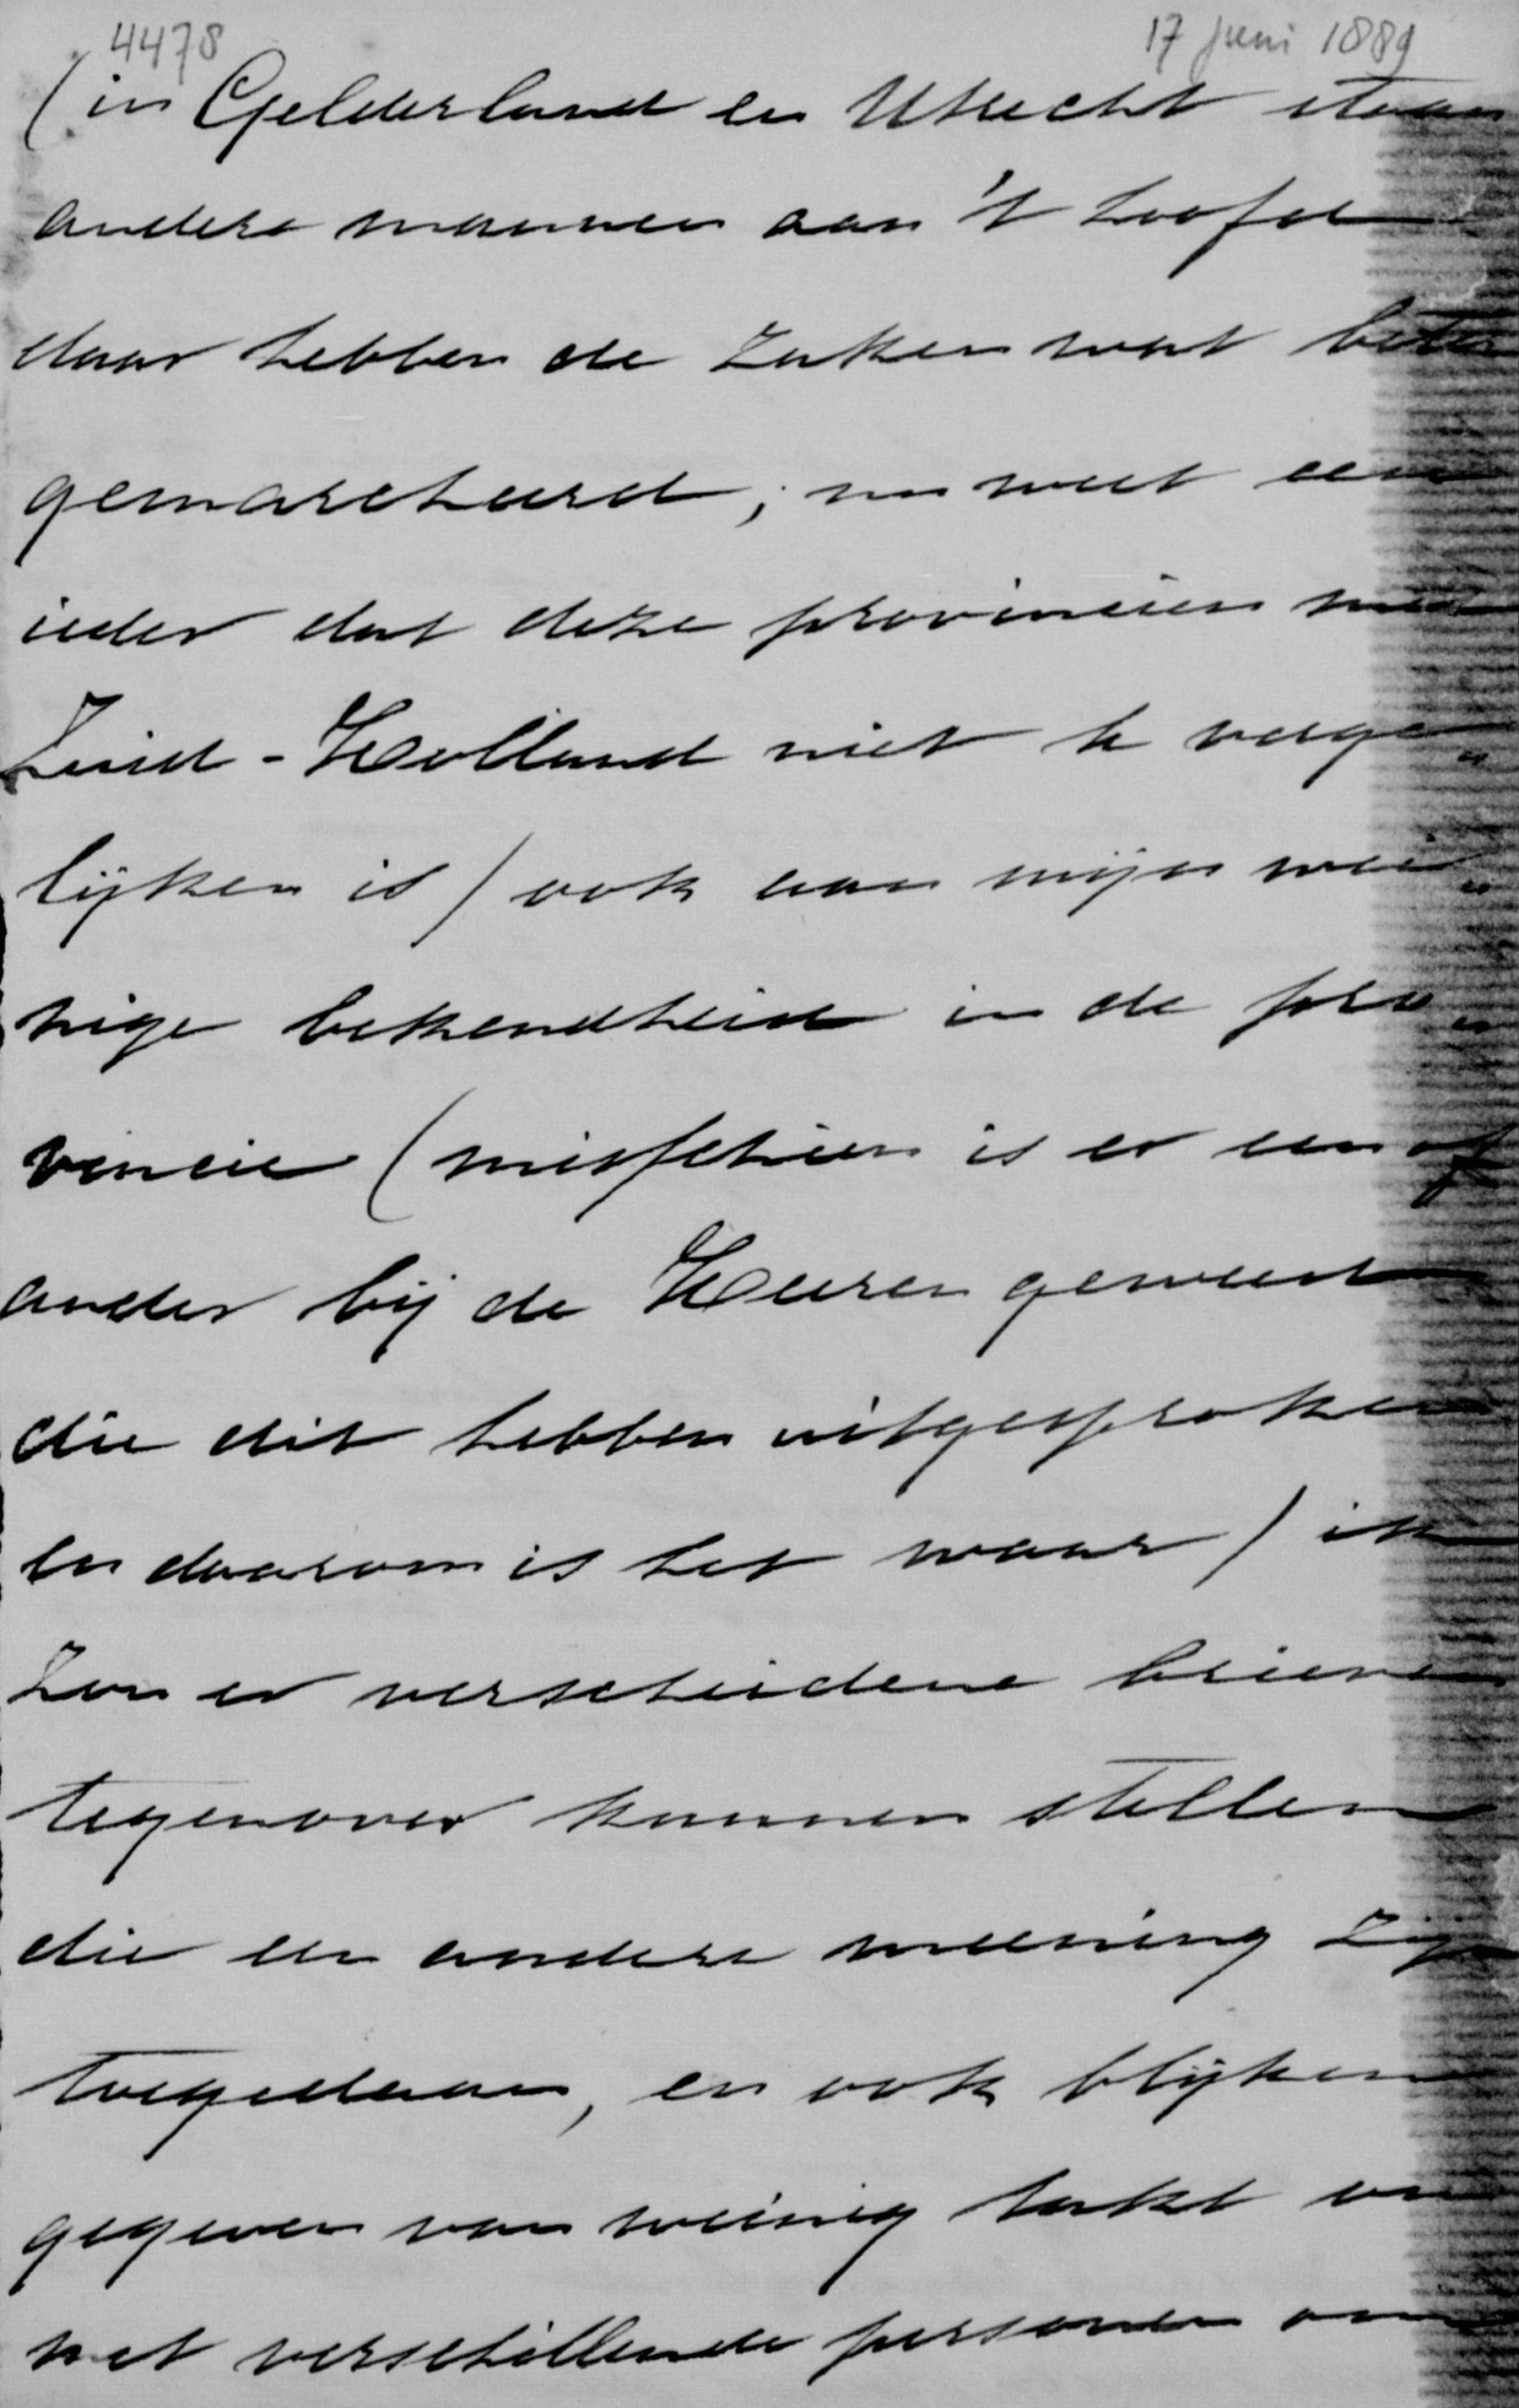 4478 17 juni 1889
(in Gelderland en Utrecht staan
andere mannen aan 't hoofd
daar hebben de zaken wat beter
gemarcheerd; nu weet een
ieder dat deze provincien met
Zuid-Holland niet te verge„
lijken is) ook aan mijn wei„
nige bekendheid in de pro„
vincie (misschien is er een of
ander bij de Heeren geweest
die dit hebben uitgesproken
en daarom is het waar) ik
zou er verscheidene brieven
tegenover kunnen stellen
die een andere meening zijn
toegedaan, en ook blijken
gegeven van weinig takt om
met verschillende personen om